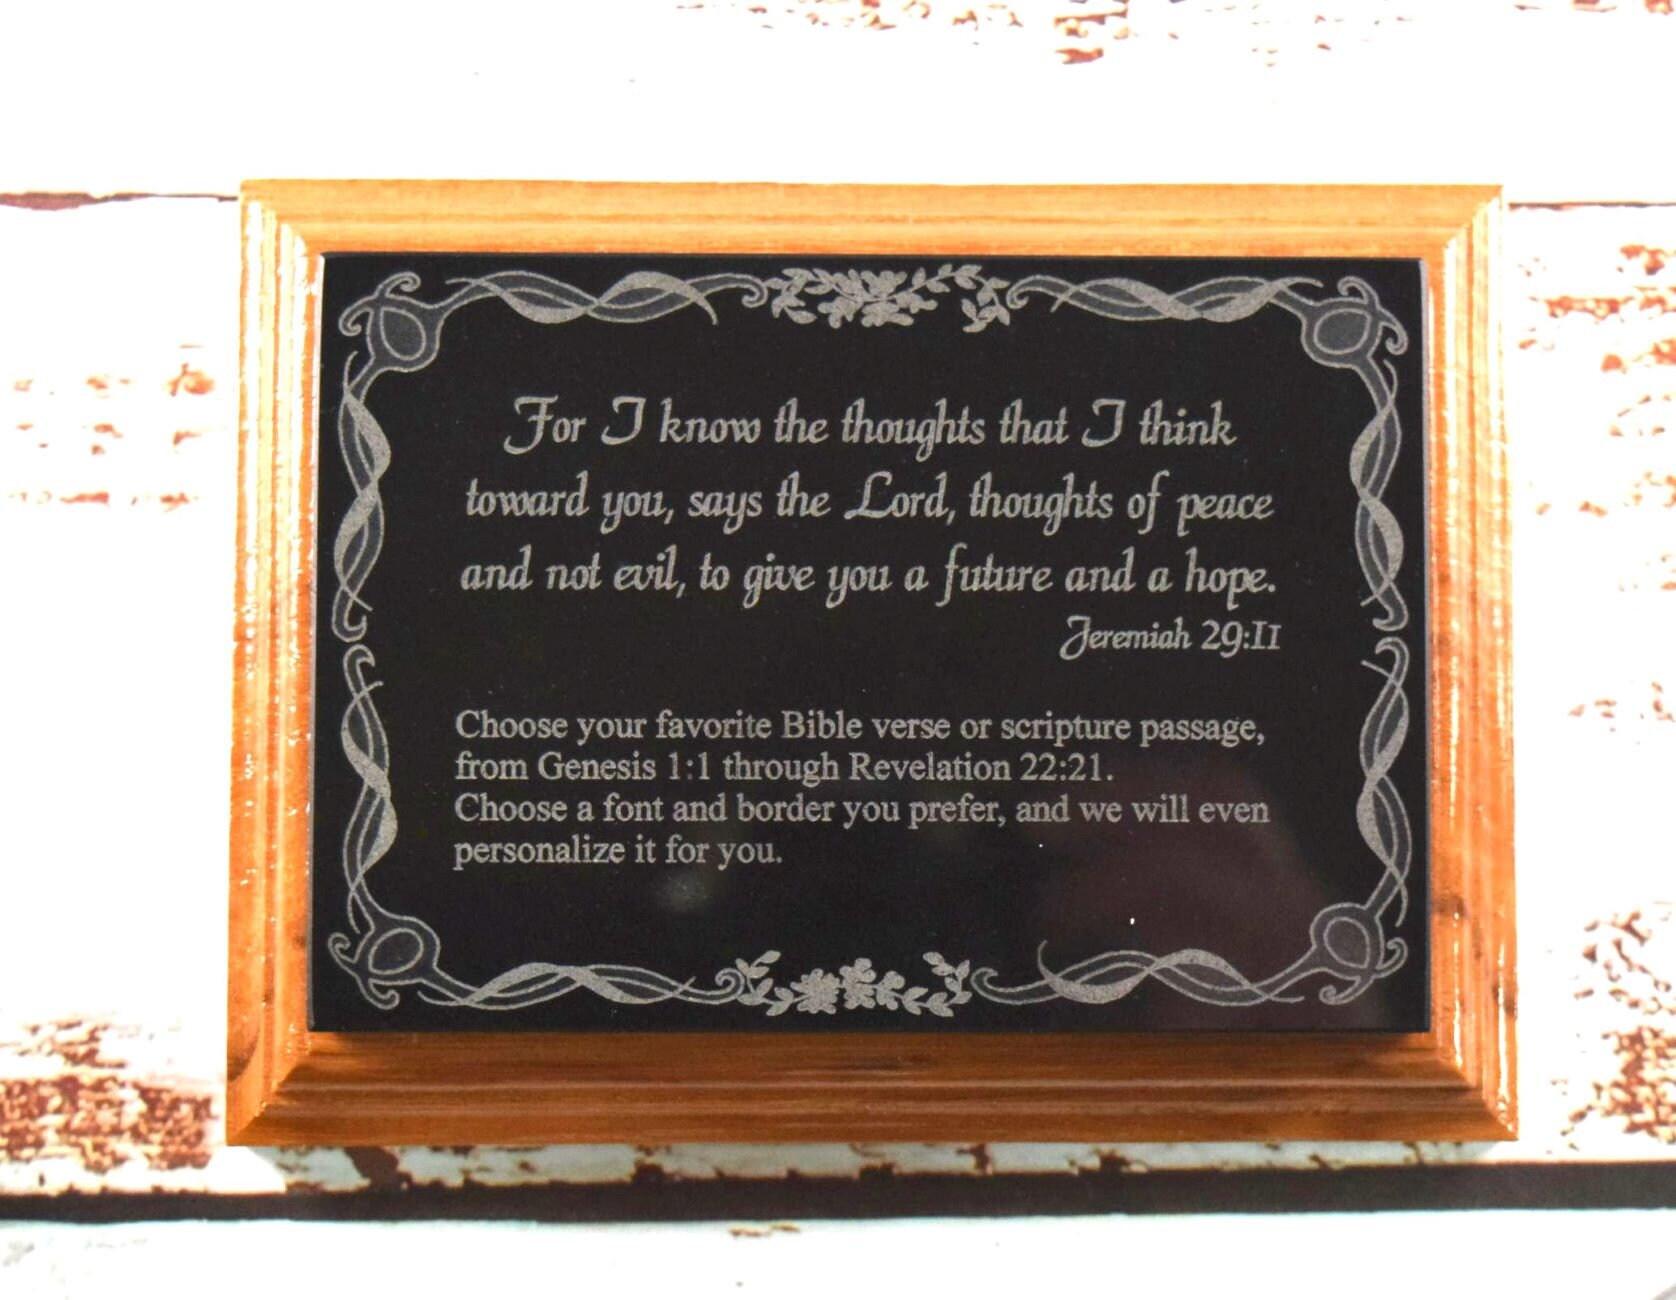 For I know the thoughts that I think
toward you, says the Lord, thoughts of peace
and not evil, to give you a future and a hope.
Jeremiah 29:11
Choose your favorite Bible verse or scripture passage,
from Genesis 1:1 through Revelation 22:21.
Choose a font and border you prefer, and we will even
personalize it for you.